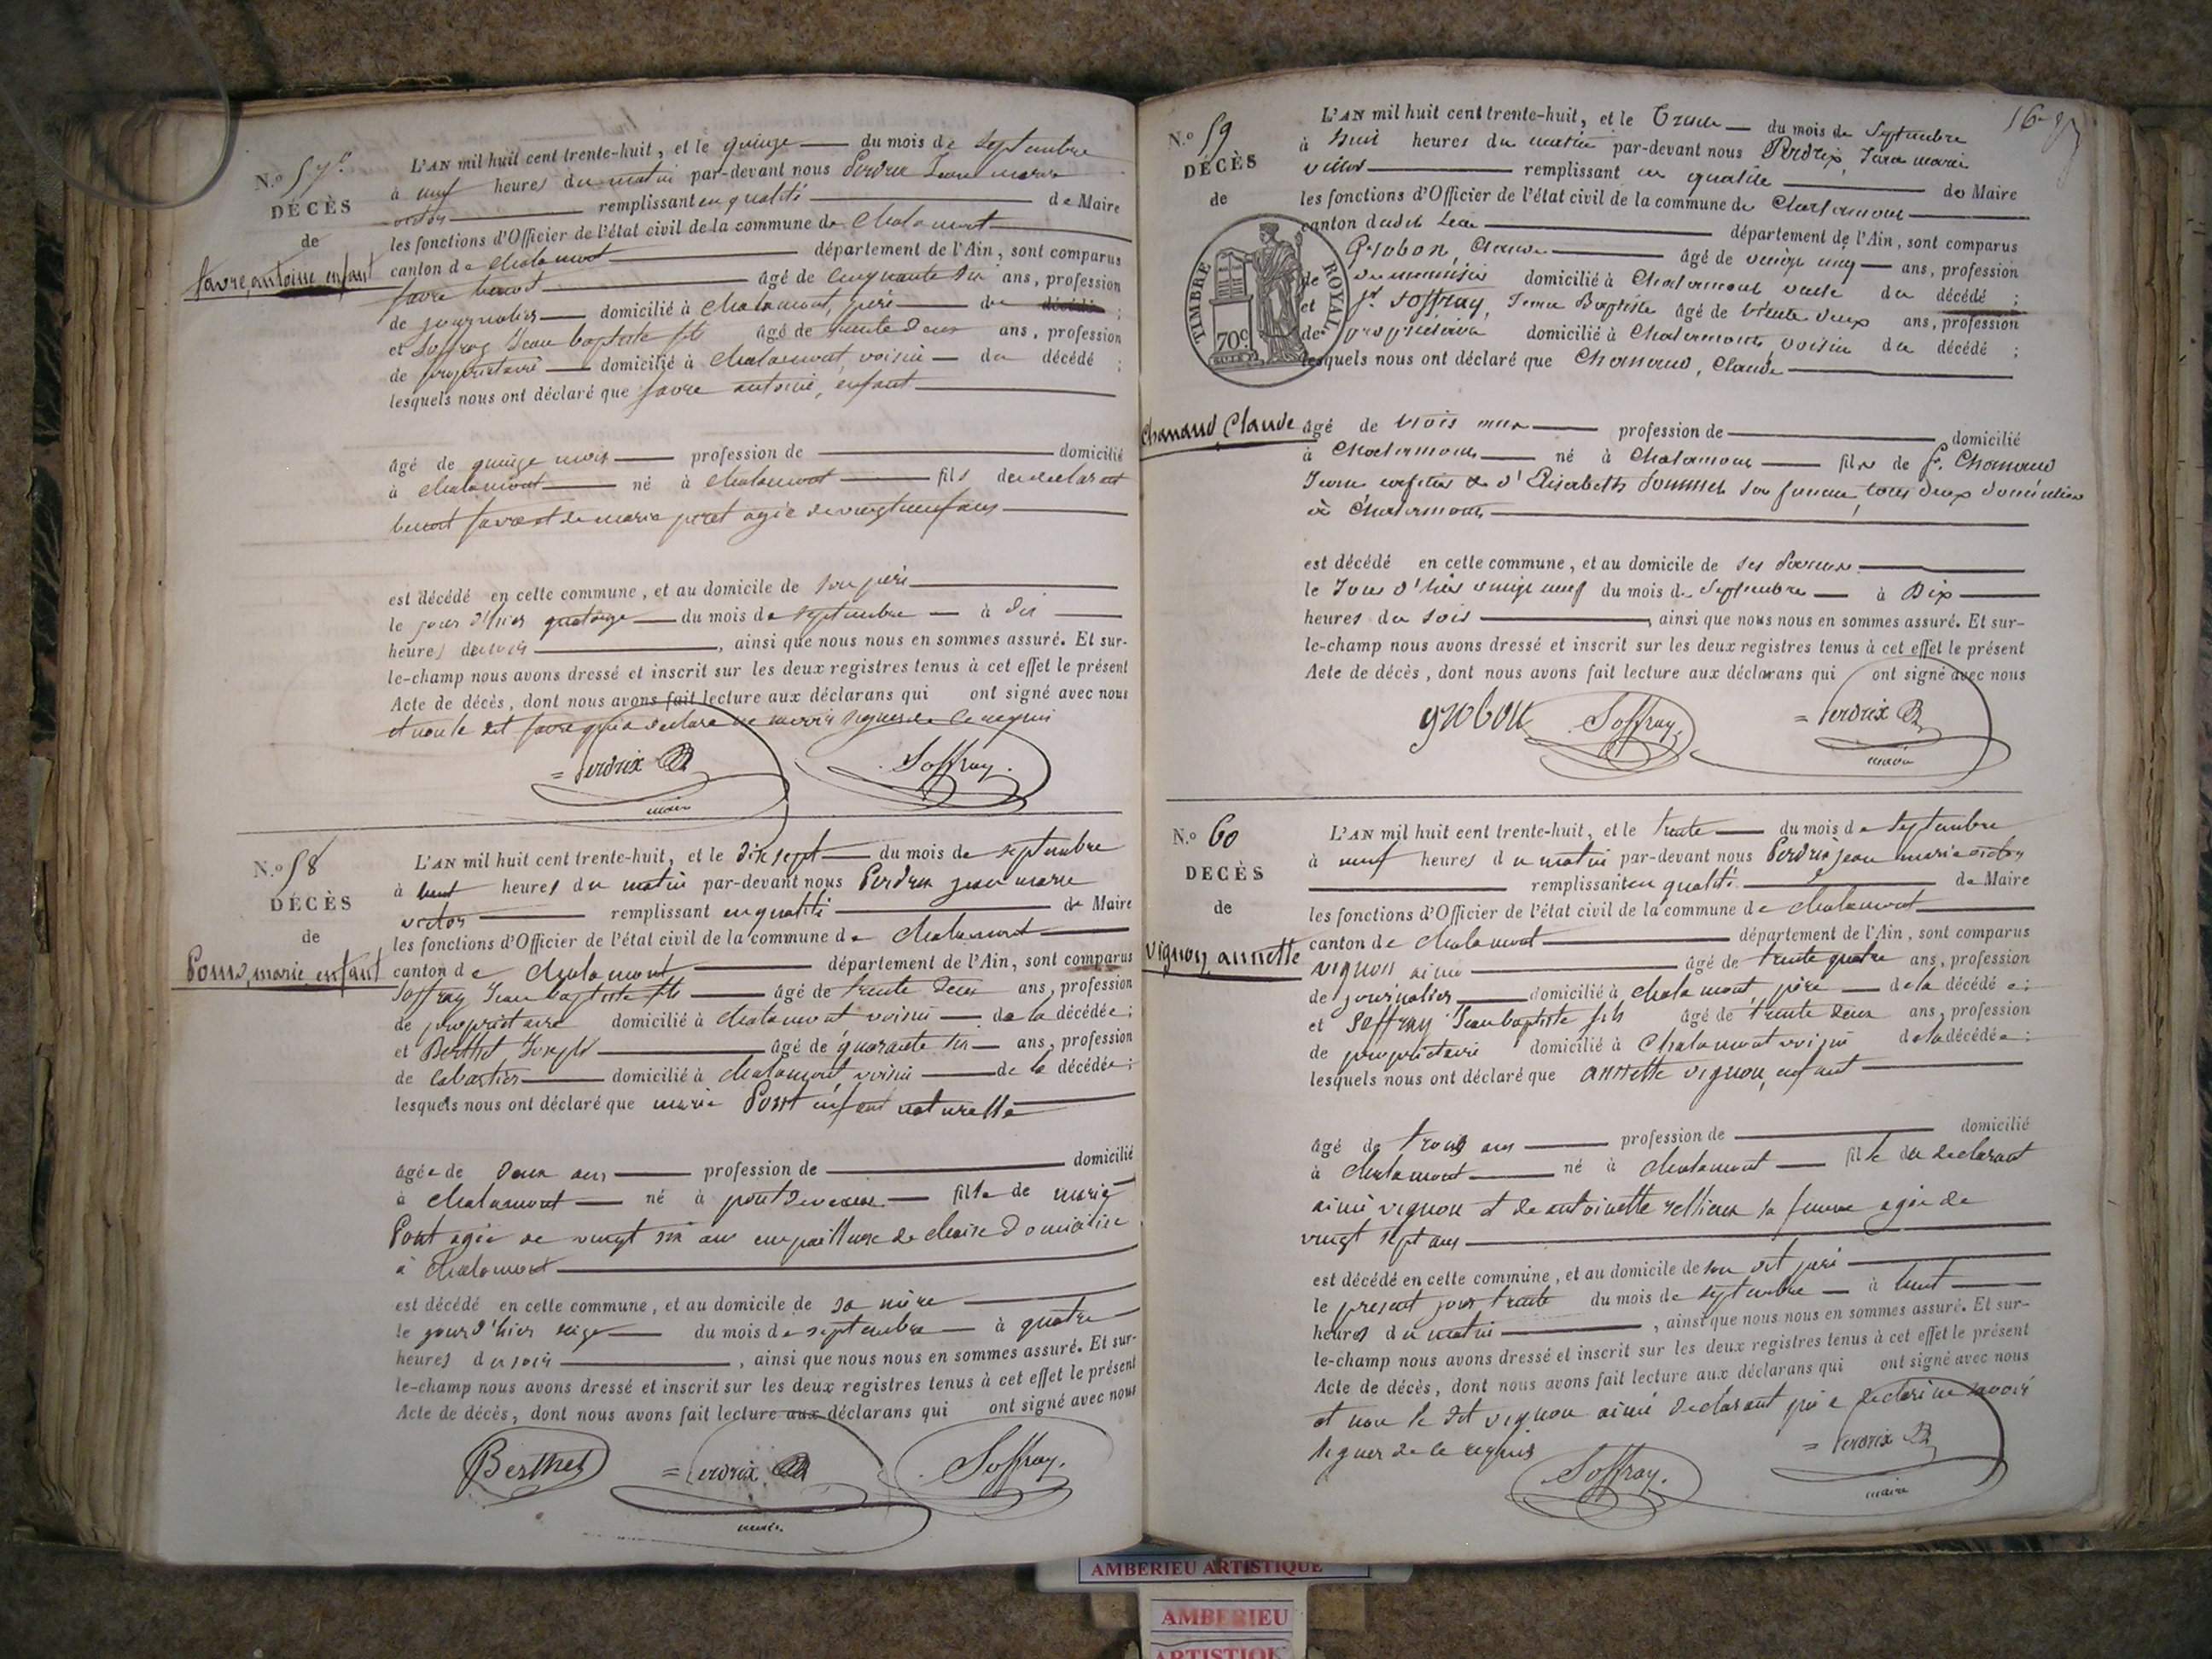 N.º 57
DÉCÈS
de
favre, antoine enfant
L'AN mil huit cent trente-huit, et le quinze du mois de septembre
à neuf heures du matin par-devant nous Perdrix Jean marie
victor remplissant en qualité de Maire
les fonctions d'Officier de l'état civil de la commune de Chalamont
canton de chalamont département de l'Ain, sont comparus
favre benoit âgé de cinquante six ans, profession
de journalier domicilié à chalamont, père du décédé ;
et Soffray Jean baptiste fils âgé de trente deux ans, profession
de propriétaire domicilié à chalamont, voisin du décédé ;
lesquels nous ont déclaré que favre antoine, enfant
âgé de quinze mois profession de domicilié
à chalamont né à chalamont fils du declarant
benoit favre et de marie peret agée de vingt neuf ans
est décédé en cette commune, et au domicile de son père
le jour d'hier quatorze du mois de septembre à dix
heures du soir, ainsi que nous nous en sommes assuré. Et sur-
le-champ nous avons dressé et inscrit sur les deux registres tenus à cet effet le présent
Acte de décès, dont nous avons fait lecture aux déclarans qui ont signé avec nous
et non le dit favre qui a declaré ne savoir signer de ce requis
Perdrix
maire
Soffray.
N.º 58
DÉCÈS
de
Pont, marie enfant
L'AN mil huit cent trente-huit, et le dix sept du mois de septembre
à huit heures du matin par-devant nous Perdrix jean marie
victor remplissant en qualité de Maire
les fonctions d'Officier de l'état civil de la commune de chalamont
canton de chalamont département de l'Ain, sont comparus
Soffray Jean baptiste fils âgé de trente deux ans, profession
de propriétaire domicilié à chalamont voisin de la décédée ;
et Berthet Joseph âgé de quarante six ans, profession
de cabartier domicilié à chalamont, voisin de la décédée ;
lesquels nous ont déclaré que marie Pont enfant naturelle
âgée de deux ans profession de domicilié
à chalamont né à pontdevaux fille de marie
Pont agée de vingt six ans empailleuse de chaise domiciliée
à chalamont
est décédé en cette commune, et au domicile de sa mère
le jour d'hier seize du mois de septembre à quatre
heures du soir, ainsi que nous nous en sommes assuré. Et sur-
le-champ nous avons dressé et inscrit sur les deux registres tenus à cet effet le présent
Acte de décès, dont nous avons fait lecture aux déclarans qui ont signé avec nous
Berthet
Perdrix
maire
Soffray.
N.º 59
DÉCÈS
de
TIMBRE ROYAL
70c
Chanand, Claude
L'AN mil huit cent trente-huit, et le Trente du mois de Septembre
à huit heures du matin par-devant nous Perdrix, Jean marie
victor remplissant en qualité de Maire
les fonctions d'Officier de l'état civil de la commune de Chalamont
canton dudit lieu département de l'Ain, sont comparus
Grobon, Claude âgé de vingt cinq ans, profession
de menuisier domicilié à Chalamont du décédé ;
et Soffray, Jean Baptiste âgé de trente deux ans, profession
de propriétaire domicilié à Chalamont, voisin du décédé ;
lesquels nous ont déclaré que Chanand, Claude
âgé de trois ans profession de domicilié
à Chalamont né à Chalamont fils de Chanand
Jean et d'Elisabeth sa femme, tous deux domiciliés
à Chalamont
est décédé en cette commune, et au domicile de ses
le Jour d'hier vingt neuf du mois de Septembre à Dix
heures du soir, ainsi que nous nous en sommes assuré. Et sur-
le-champ nous avons dressé et inscrit sur les deux registres tenus à cet effet le présent
Acte de décès, dont nous avons fait lecture aux déclarans qui ont signé avec nous
grobon
Soffray.
Perdrix
maire
N.º 60
DECÈS
de
Vignon, annette
L'AN mil huit cent trente-huit, et le trente du mois de septembre
à neuf heures du matin par-devant nous Perdrix jean marie victor
remplissant en qualité de Maire
les fonctions d'Officier de l'état civil de la commune de chalamont
canton de chalamont département de l'Ain, sont comparus
vignon aimé âgé de trente quatre ans, profession
de journalier domicilié à chalamont, père de la décédée ;
et Soffray Jean baptiste fils âgé de trente deux ans, profession
de propriétaire domicilié à Chalamont voisin de la décédée ;
lesquels nous ont déclaré que annette vignon, enfant
âgé de trois ans profession de domicilié
à chalamont né à chalamont fille du declarant
aimé vignon et de antoinette sa femme agée de
vingt sept ans
est décédé en cette commune, et au domicile de son dit père
le present jour trente du mois de septembre à huit
heures du matin, ainsi que nous nous en sommes assuré. Et sur-
le-champ nous avons dressé et inscrit sur les deux registres tenus à cet effet le présent
Acte de décès, dont nous avons fait lecture aux déclarans qui ont signé avec nous
et non le dit vignon aimé declarant qui a declaré ne savoir
signer de ce requis
Soffray.
Perdrix
maire
AMBERIEU ARTISTIQUE
AMBERIEU
ARTISTIQUE